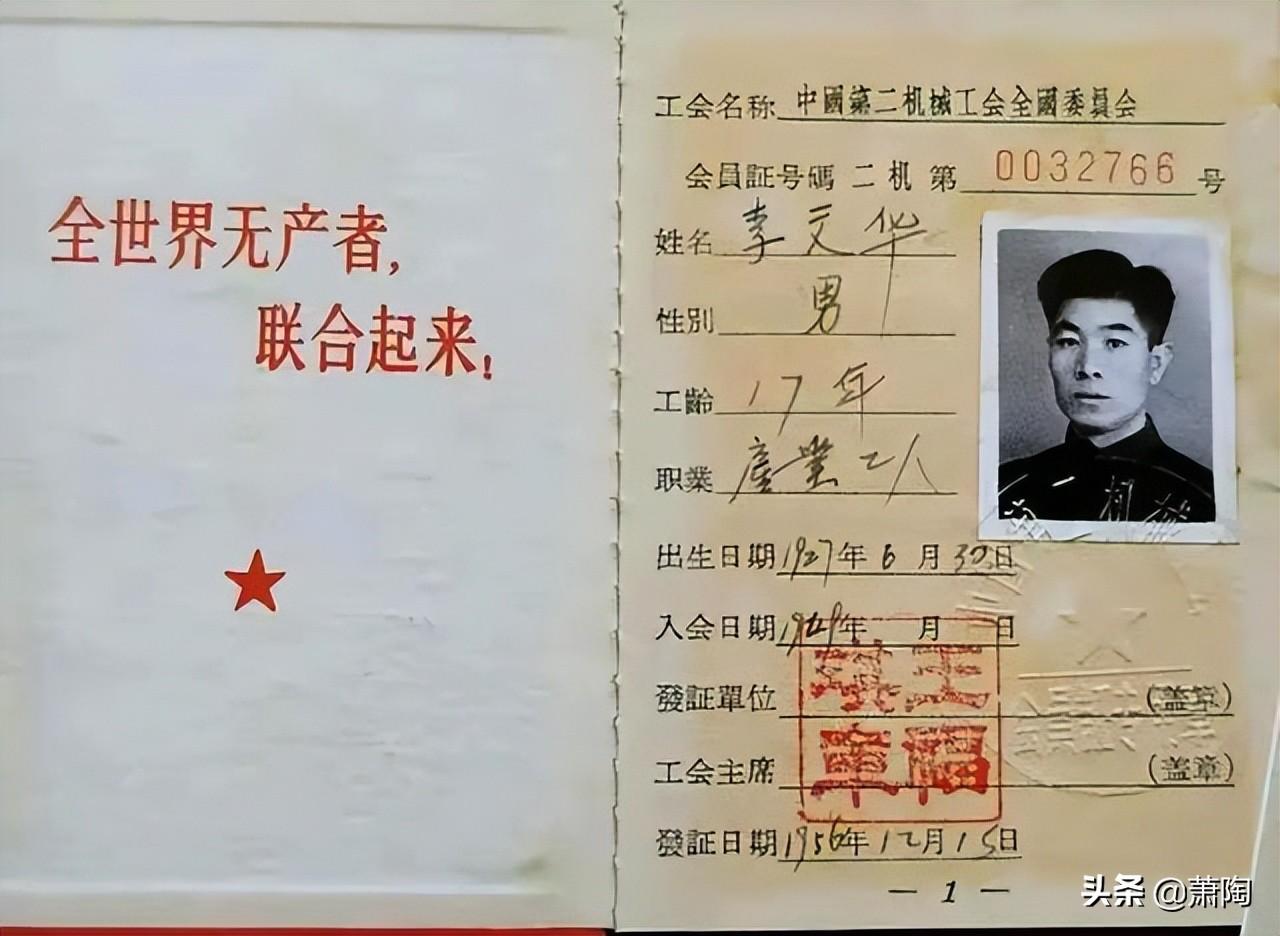 全世界无产者，
联合起来！
工会名称 中國第二机械工会全國委員会
会員証号碼 二机 第 0032766 号
姓名 李文华
性別 男
工齡 17年
职業 產業工人
出生日期 1927年 6月 30日
入会日期 1949年 月 日
發証單位 (盖章)
工会主席 (盖章)
發証日期 1956年 12月 15日
— 1 —
头条 @萧陶